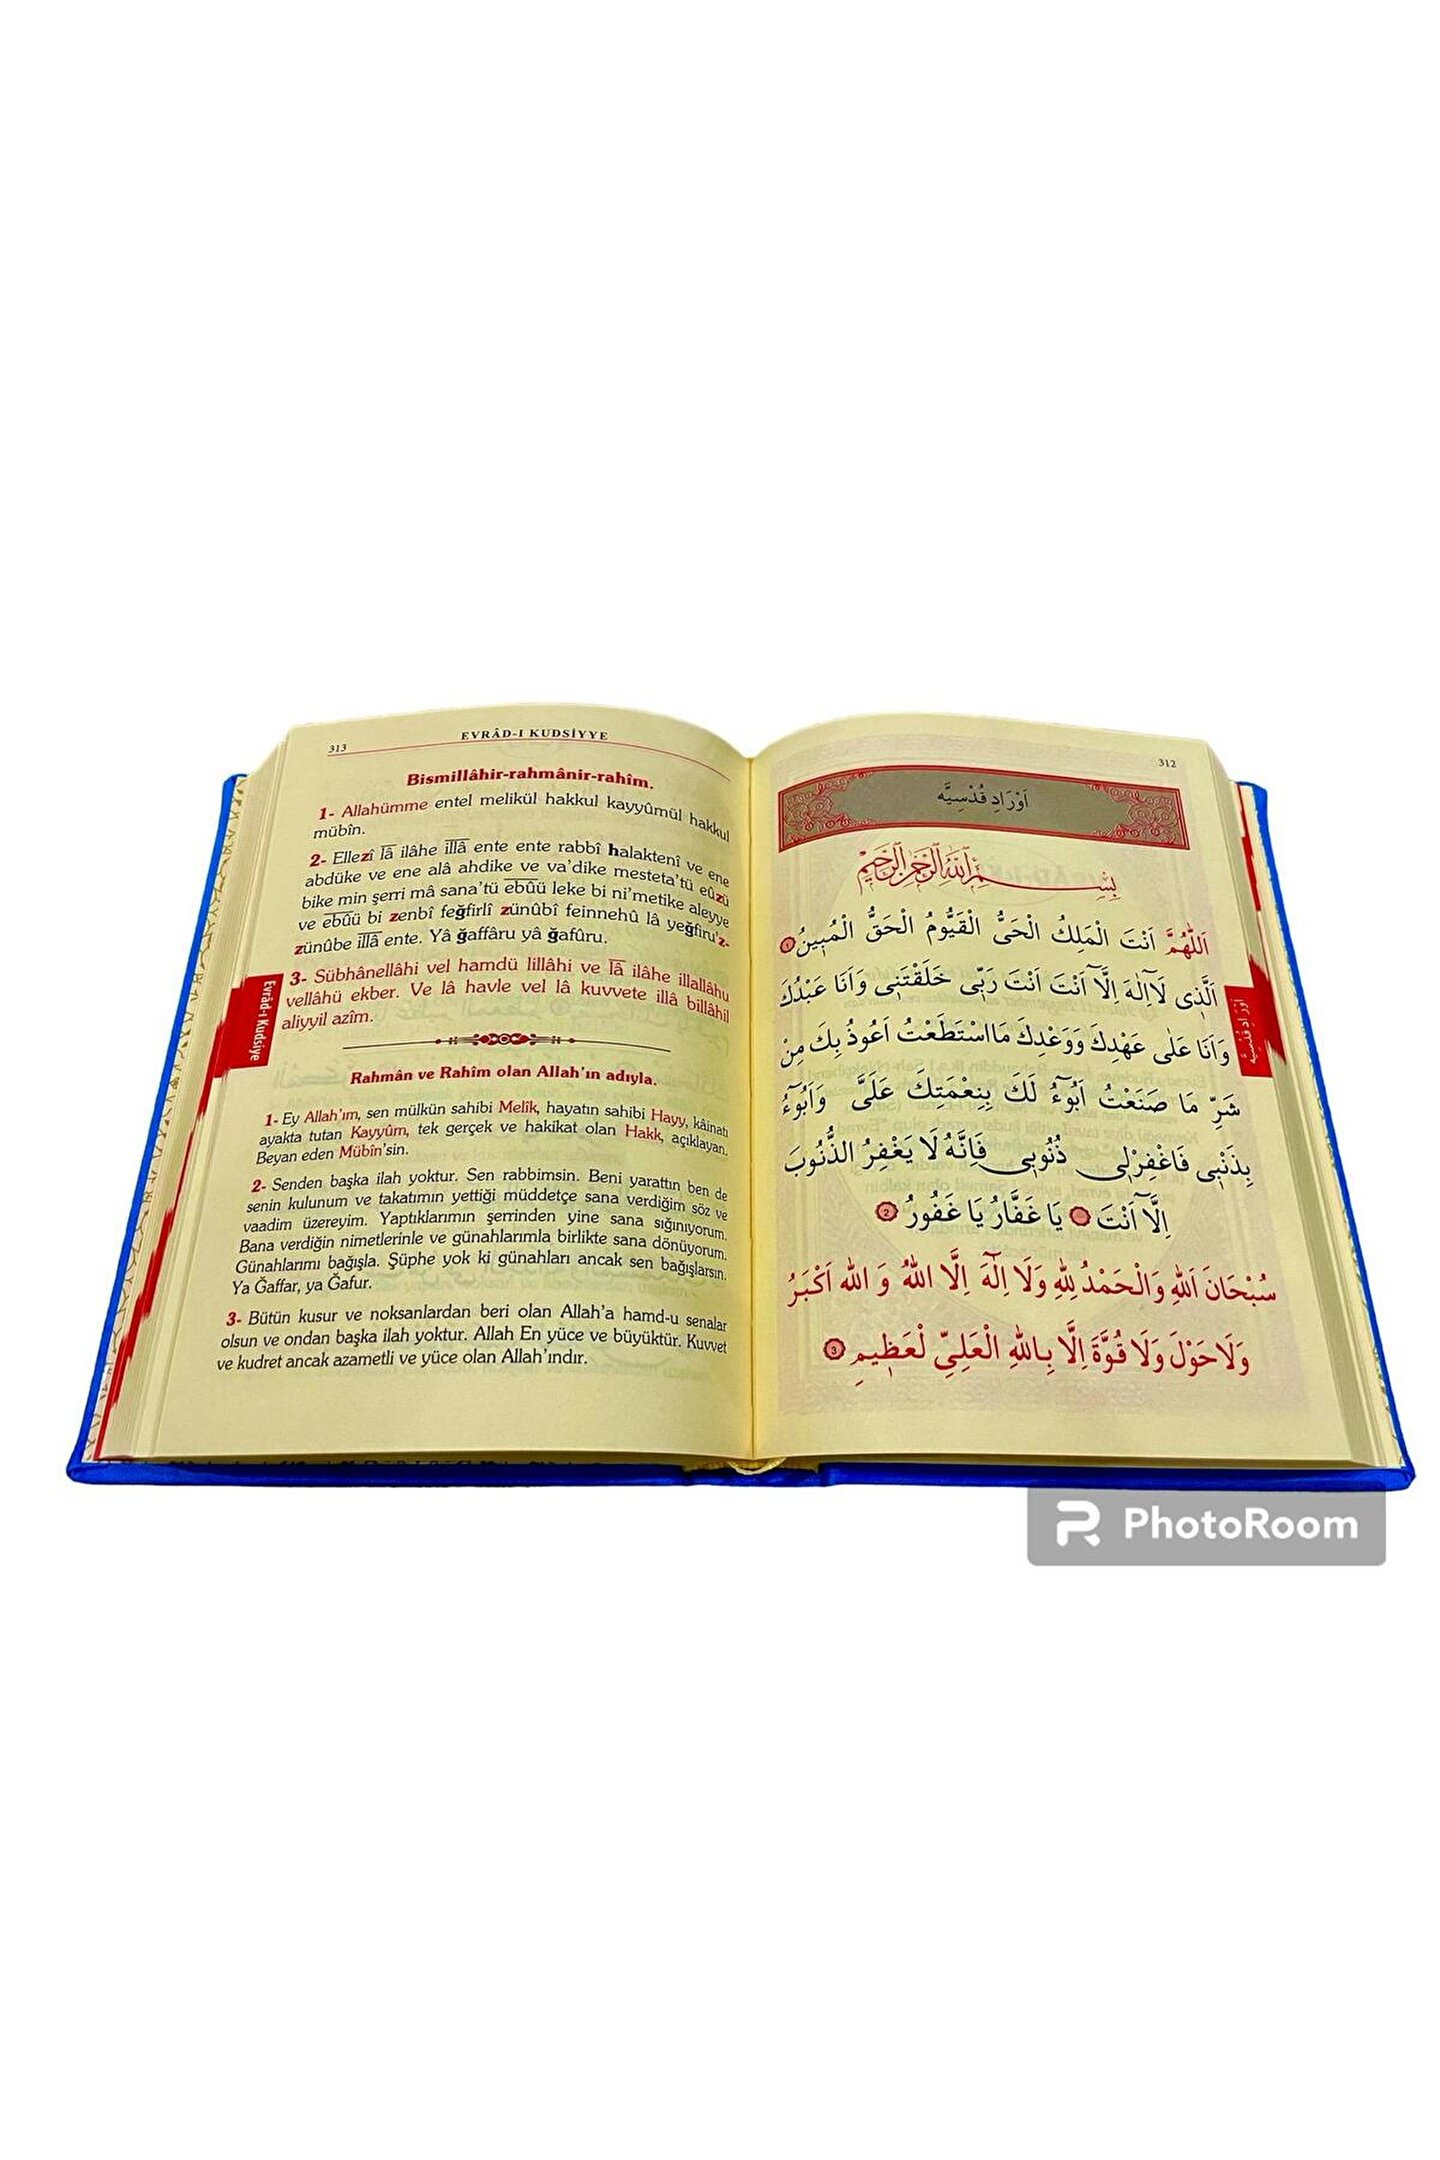 312
اَوْرَادِ قُدْسِيَّه
بِسْمِ اللّٰهِ الرَّحْمٰنِ الرَّحِيمِ
اَللّٰهُمَّ اَنْتَ الْمَلِكُ الْحَىُّ الْقَيُّومُ الْحَقُّ الْمُبِينُ ١
اَلَّذِى لَااِلٰهَ اِلَّا اَنْتَ اَنْتَ رَبِّى خَلَقْتَنِى وَاَنَا عَبْدُكَ
وَاَنَا عَلٰى عَهْدِكَ وَوَعْدِكَ مَااسْتَطَعْتُ اَعُوذُ بِكَ مِنْ
شَرِّ مَا صَنَعْتُ اَبُوٓءُ لَكَ بِنِعْمَتِكَ عَلَىَّ وَاَبُوٓءُ
بِذَنْبِى فَاغْفِرْلِى ذُنُوبِى فَاِنَّهُ لَا يَغْفِرُ الذُّنُوبَ
اِلَّا اَنْتَ يَا غَفَّارُ يَا غَفُورُ 2
سُبْحَانَ اللّٰهِ وَالْحَمْدُ لِلّٰهِ وَلَا اِلٰهَ اِلَّا اللّٰهُ وَ اللّٰه اَكْبَرُ
وَلَاحَوْلَ وَلَا قُوَّةَ اِلَّا بِاللّٰهِ الْعَلِىِّ لْعَظِيمِ 3
اَوْرَادِ قُدْسِيَّه
313
EVRÂD-I KUDSİYYE
Bismillâhir-rahmânir-rahîm.
1- Allahümme entel melikül hakkul kayyûmül hakkul
mübîn.
2- Ellezî lâ ilâhe illâ ente ente rabbî halaktenî ve ene
abdüke ve ene alâ ahdike ve va'dike mesteta'tü eûzü
bike min şerri mâ sana'tü ebûü leke bi ni'metike aleyye
ve ebûü bi zenbî feğfirlî zünûbî feinnehû lâ yeğfiru'z-
zünûbe illâ ente. Yâ ğaffâru yâ ğafûru.
3- Sübhânellâhi vel hamdü lillâhi ve lâ ilâhe illallâhu
vellâhü ekber. Ve lâ havle vel lâ kuvvete illâ billâhil
aliyyil azîm.
Evrâd-ı Kudsiye
Rahmân ve Rahîm olan Allah'ın adıyla.
1- Ey Allah'ım, sen mülkün sahibi Melîk, hayatın sahibi Hayy, kâinatı
ayakta tutan Kayyûm, tek gerçek ve hakikat olan Hakk, açıklayan,
Beyan eden Mübîn'sin.
2- Senden başka ilah yoktur. Sen rabbimsin. Beni yarattın ben de
senin kulunum ve takatımın yettiği müddetçe sana verdiğim söz ve
vaadim üzereyim. Yaptıklarımın şerrinden yine sana sığınıyorum.
Bana verdiğin nimetlerinle ve günahlarımla birlikte sana dönüyorum.
Günahlarımı bağışla. Şüphe yok ki günahları ancak sen bağışlarsın.
Ya Ğaffar, ya Ğafur.
3- Bütün kusur ve noksanlardan beri olan Allah'a hamd-u senalar
olsun ve ondan başka ilah yoktur. Allah En yüce ve büyüktür. Kuvvet
ve kudret ancak azametli ve yüce olan Allah'ındır.
PhotoRoom